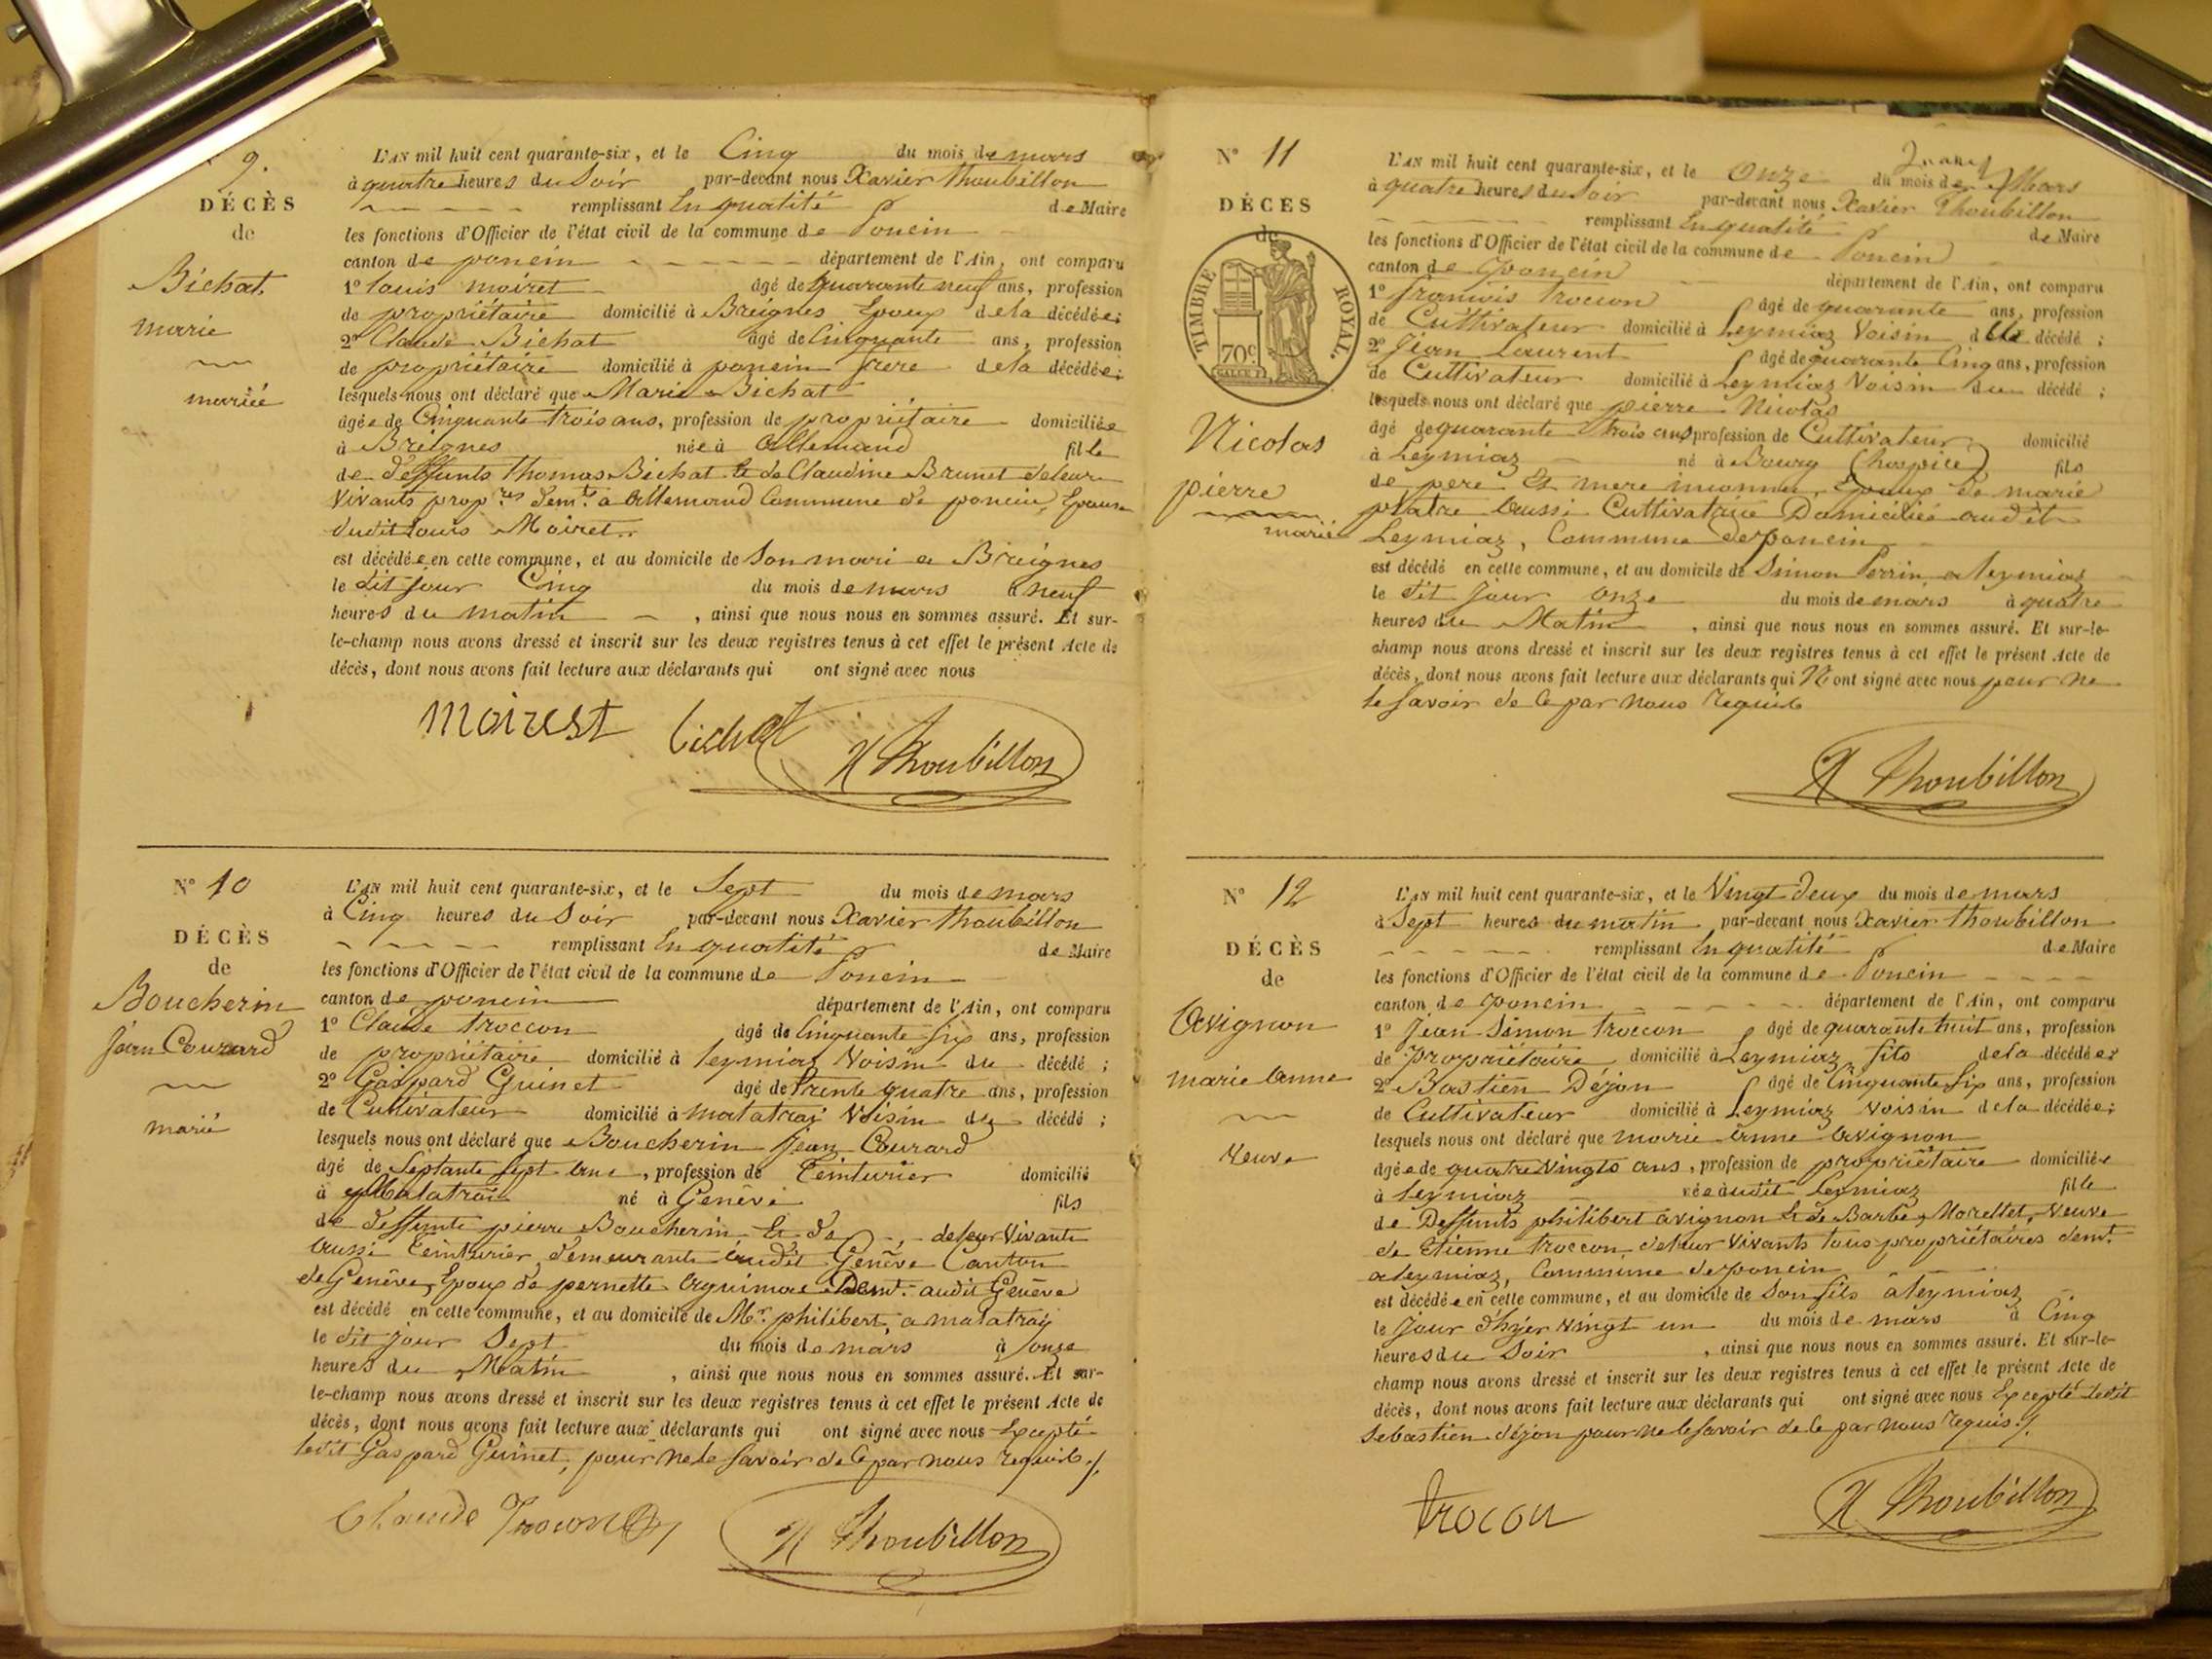 9.
DÉCÈS
de
Bichat
marie
mariée
L'AN mil huit cent quarante-six, et le Cinq du mois de mars
à quatre heures du Soir par-devant nous Xavier Thoubillon
remplissant En qualité de Maire
les fonctions d'Officier de l'état civil de la commune de Poncin
canton de poncin département de l'Ain, ont comparu
1° louis moiret âgé de quarante neuf ans, profession
de propriétaire domicilié à Breignes Epoux de la décédée;
2° Claude Bichat âgé de Cinquante ans, profession
de propriétaire domicilié à poncin frere de la décédée;
lesquels nous ont déclaré que Marie Bichat
âgée de Cinquante trois ans, profession de propriétaire domiciliée
à Breignes née à Allemand fille
de deffunts Thomas Bichat et de Claudine Brunet de leur
vivants prop.res dem.ts a allemand Commune de poncin, Epouse
dudit louis Moiret
est décédée en cette commune, et au domicile de Son mari a Breignes
le dit jour Cinq du mois de mars à neuf
heures du matin , ainsi que nous nous en sommes assuré. Et sur-
le-champ nous avons dressé et inscrit sur les deux registres tenus à cet effet le présent Acte de
décès, dont nous avons fait lecture aux déclarants qui ont signé avec nous
moirest bichat X Thoubillon
N° 10
DÉCÈS
de
Boucherin
Jean Courard
marié
L'AN mil huit cent quarante-six, et le Sept du mois de mars
à Cinq heures du Soir par-devant nous Xavier Thoubillon
remplissant En qualité de Maire
les fonctions d'Officier de l'état civil de la commune de Poncin
canton de poncin département de l'Ain, ont comparu
1° Claude Troccon âgé de Cinquante Six ans, profession
de propriétaire domicilié à leymiaz Voisin du décédé ;
2° Gaspard Guinet âgé de Trente quatre ans, profession
de Cultivateur domicilié à matatray Voisin du décédé ;
lesquels nous ont déclaré que Boucherin Jean Courard
âgé de Septante Sept ans , profession de Teinturier domicilié
à Malatrai né à Genève fils
de deffunts pierre Boucherin Et de de leur Vivants
aussi Teinturier demeurants audit Genève Canton
de Genève, Epoux de pernette Dem.t audit Genève
est décédé en cette commune, et au domicile de M.r philibert, a matatray
le dit jour Sept du mois de mars à onze
heures du Matin , ainsi que nous nous en sommes assuré. Et sur-
le-champ nous avons dressé et inscrit sur les deux registres tenus à cet effet le présent Acte de
décès, dont nous avons fait lecture aux déclarants qui ont signé avec nous Excepté
ledit Gaspard Guinet, pour ne le Savoir de Ce par nous requis ./.
Claude X Thoubillon
N° 11
DÉCÈS
de
TIMBRE ROYAL.
70c
Nicolas
pierre
marié
L'AN mil huit cent quarante-six, et le Onze du mois de Mars
à quatre heures du Soir par-devant nous Xavier Thoubillon
remplissant En qualité de Maire
les fonctions d'Officier de l'état civil de la commune de Poncin
canton de Poncin département de l'Ain, ont comparu
1° françois Troccon âgé de quarante ans, profession
de Cultivateur domicilié à Leymiaz Voisin du décédé ;
2° Jean Laurent âgé de quarante Cinq ans, profession
de Cultivateur domicilié à Leymiaz Voisin du décédé ;
lesquels nous ont déclaré que pierre Nicolas
âgé de quarante Trois ans, profession de Cultivateur domicilié
à Leymiaz né à Bourg (hospice) fils
de pere Et mere inconnus, Epoux de marie
platre aussi Cultivatrice Domiciliée audit
Leymiaz, Commune de poncin
est décédé en cette commune, et au domicile de Simon Perrin a leymiaz
le dit jour onze du mois de mars à quatre
heures du Matin , ainsi que nous nous en sommes assuré. Et sur-le-
champ nous avons dressé et inscrit sur les deux registres tenus à cet effet le présent Acte de
décès, dont nous avons fait lecture aux déclarants qui N'ont signé avec nous pour ne
le Savoir de Ce par nous requis
X Thoubillon
N° 12
DÉCÈS
de
Avignon
marie anne
Veuve
L'AN mil huit cent quarante-six, et le Vingt deux du mois de mars
à Sept heures du matin par-devant nous Xavier Thoubillon
remplissant En qualité de Maire
les fonctions d'Officier de l'état civil de la commune de Poncin
canton de Poncin département de l'Ain, ont comparu
1° Jean Simon Troccon âgé de quarante huit ans, profession
de Propriétaire domicilié à Leymiaz fils de la décédée;
2° Bastien Déjon âgé de Cinquante Six ans, profession
de Cultivateur domicilié à Leymiaz Voisin de la décédée;
lesquels nous ont déclaré que marie anne avignon
âgée de quatre Vingts ans , profession de propriétaire domiciliée
à leymiaz née audit Leymiaz fille
de Deffunts philibert avignon Et de Barbe Morellet, Veuve
de Etienne Troccon, de leur Vivants tous propriétaires dem.t
a leymiaz, Commune de poncin
est décédée en cette commune, et au domicile de Son fils a leymiaz
le jour d'hyer vingt un du mois de mars à Cinq
heures du Soir , ainsi que nous nous en sommes assuré. Et sur-le-
champ nous avons dressé et inscrit sur les deux registres tenus à cet effet le présent Acte de
décès, dont nous avons fait lecture aux déclarants qui ont signé avec nous Excepté ledit
Sebastien déjon pour ne le Savoir de Ce par nous requis ./.
trocon X Thoubillon